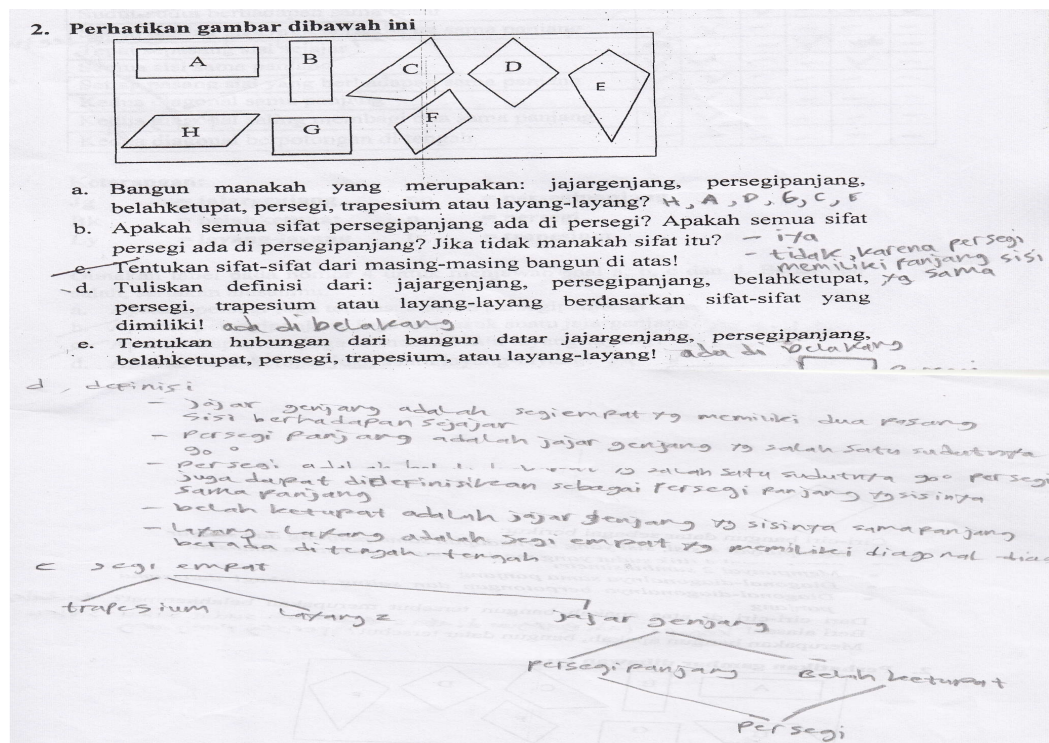 2. Perhatikan gambar dibawah ini
A
B
C
D
E
H
G
F
a. Bangun manakah yang merupakan: jajargenjang, persegipanjang,
belahketupat, persegi, trapesium atau layang-layang? H, A, D, G, C, E
b. Apakah semua sifat persegipanjang ada di persegi? Apakah semua sifat
persegi ada di persegipanjang? Jika tidak manakah sifat itu? - iya
- tidak, karena persegi
memiliki panjang sisi
yg sama
c. Tentukan sifat-sifat dari masing-masing bangun di atas!
d. Tuliskan definisi dari: jajargenjang, persegipanjang, belahketupat,
persegi, trapesium atau layang-layang berdasarkan sifat-sifat yang
dimiliki! ada di belakang
e. Tentukan hubungan dari bangun datar jajargenjang, persegipanjang,
belahketupat, persegi, trapesium, atau layang-layang! ada di belakang
d, definisi
- jajar genjang adalah segiempat yg memiliki dua pasang
sisi berhadapan sejajar
- persegi panjang adalah jajar genjang yg salah satu sudutnya
90°
- persegi yg salah satu sudutnya 90° persegi
juga dapat didefinisikan sebagai persegi panjang yg sisinya
sama panjang
- belah ketupat adalah jajar genjang yg sisinya sama panjang
- layang-layang adalah segi empat yg memiliki diagonal
berada ditengah-tengah
segi empat
trapesium
Layang2
jajar genjang
persegi panjang
Belah ketupat
persegi